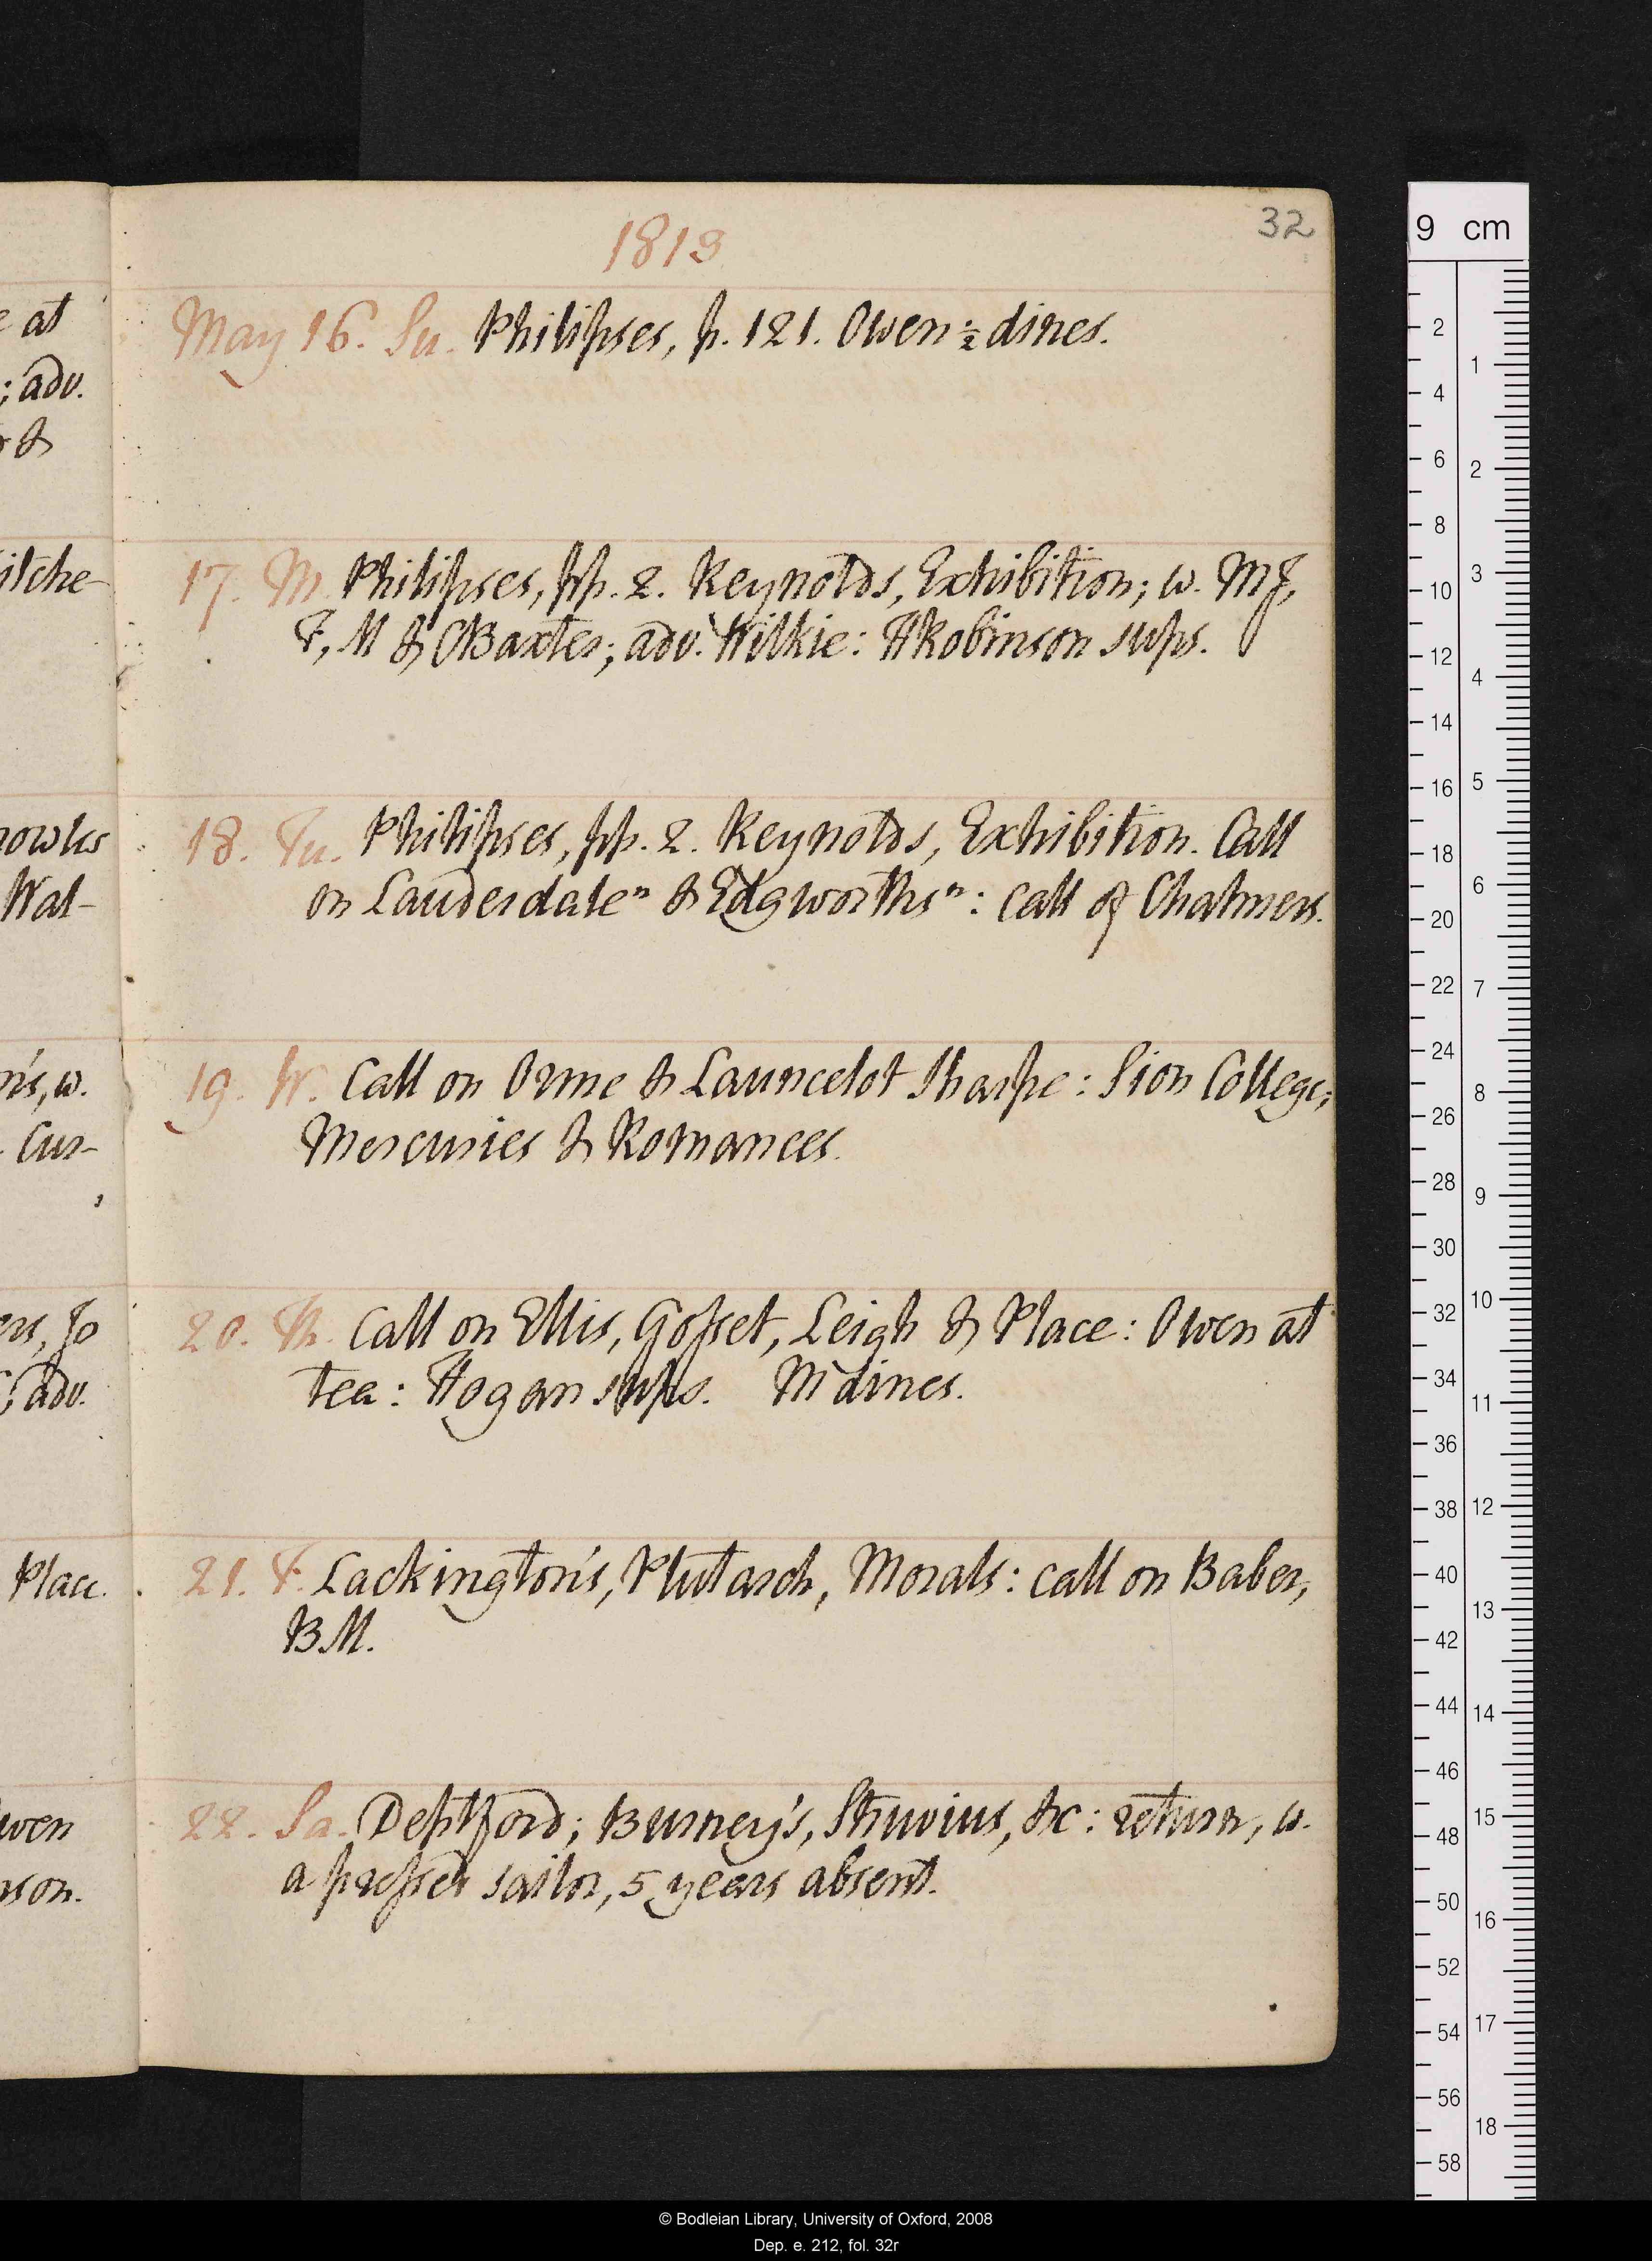 1813
32
May 16. Su. Philipses, p. 121. Owen ½ dines.
17. M. Philipses, pp. 2. Reynolds, Exhibition; w. MJ,
F, M & CBaxter; adv. Wilkie: HRobinson sups.
18. Tu. Philipses, pp. 2. Reynolds, Exhibition. Call
on Lauderdale n & Edgworths n: call of Chalmers.
19. W. Call on Orme & Launcelot Sharpe: Sion College;
Mercuries & Romances.
20. Th. Call on Ellis, Gosset, Leigh & Place: Owen at
tea: Hogan sups. M dines.
21. F. Lackington's, Plutarch, Morals: call on Baber,
BM.
22. Sa. Deptford; Burney's, Struvius, &c: return, w.
a pressed sailor, 5 years absent.
e at
; adv.
&
itche-
nowles
Wal-
n's, w.
Cur-
ers, Jo
; adv.
Place.
wen
nson.
9 cm
2
4
6
8
10
12
14
16
18
20
22
24
26
28
30
32
34
36
38
40
42
44
46
48
50
52
54
56
58
1
2
3
4
5
6
7
8
9
10
11
12
13
14
15
16
17
18
© Bodleian Library, University of Oxford, 2008
Dep. e. 212, fol. 32r